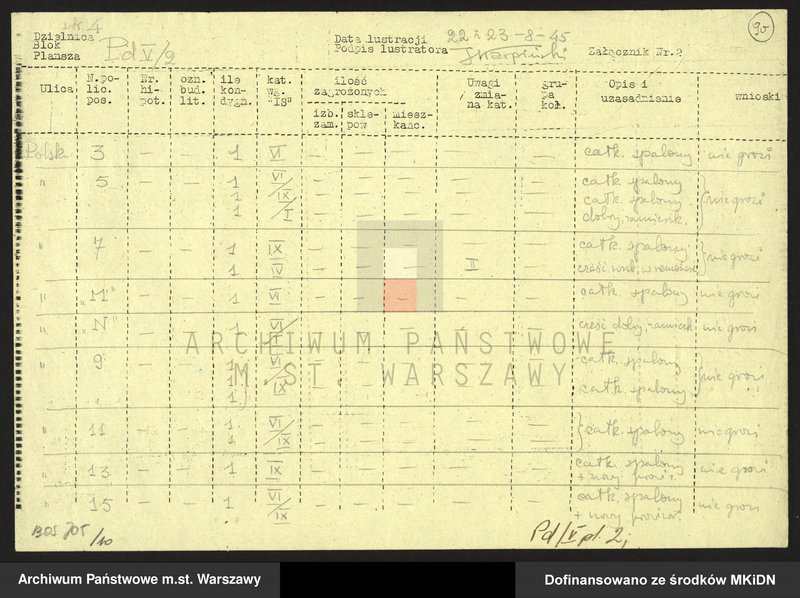 Dzielnica
Blok
Plansza
Pd V/2
Data lustracji 22 i 23-8-45
Podpis lustratora
Załącznik Nr.2
90
Ulica
N.po-
lic.
pos.
Nr.
hi-
pot.
ozn.
bud.
lit.
ile
kon-
dygn.
kat.
wg.
"IS"
ilość
zagrożonych
izb.
zam.
skle-
pów
miesz-
kańc.
Uwagi
zmia-
na kat.
gru-
pa
kol.
Opis i
uzasadnienie
wnioski
Polska 3 - - 1 VI - - - - całk. spalony nie grozi
" 5 - - 1 VI - - - - - całk. spalony
1 IX - - - - - całk. spalony nie grozi
1 I - - - - - dobry, zamieszk.
" 7 - - 1 IX - - - - - całk. spalony nie grozi
1 IV - - - II - część
" „M" - - 1 VI - - - - - całk. spalony nie grozi
" „N" - - 1 VI - - - - - część dobry, nie grozi
" 9 - - 1 VI - - - - - całk. spalony
1 IX - - - - - całk. spalony nie grozi
" 11 - - 1 VI - - - - - całk. spalony nie grozi
1 IX - - - - -
" 13 - - 1 IX - - - - - całk. spalony nie grozi
+ nowy
" 15 - - 1 VI - - - - - całk. spalony nie grozi
IX + nowy
ARCHIWUM PAŃSTWOWE
M. ST. WARSZAWY
BOS 705
/10
Pd/V pl. 2
Archiwum Państwowe m.st. Warszawy
Dofinansowano ze środków MKiDN